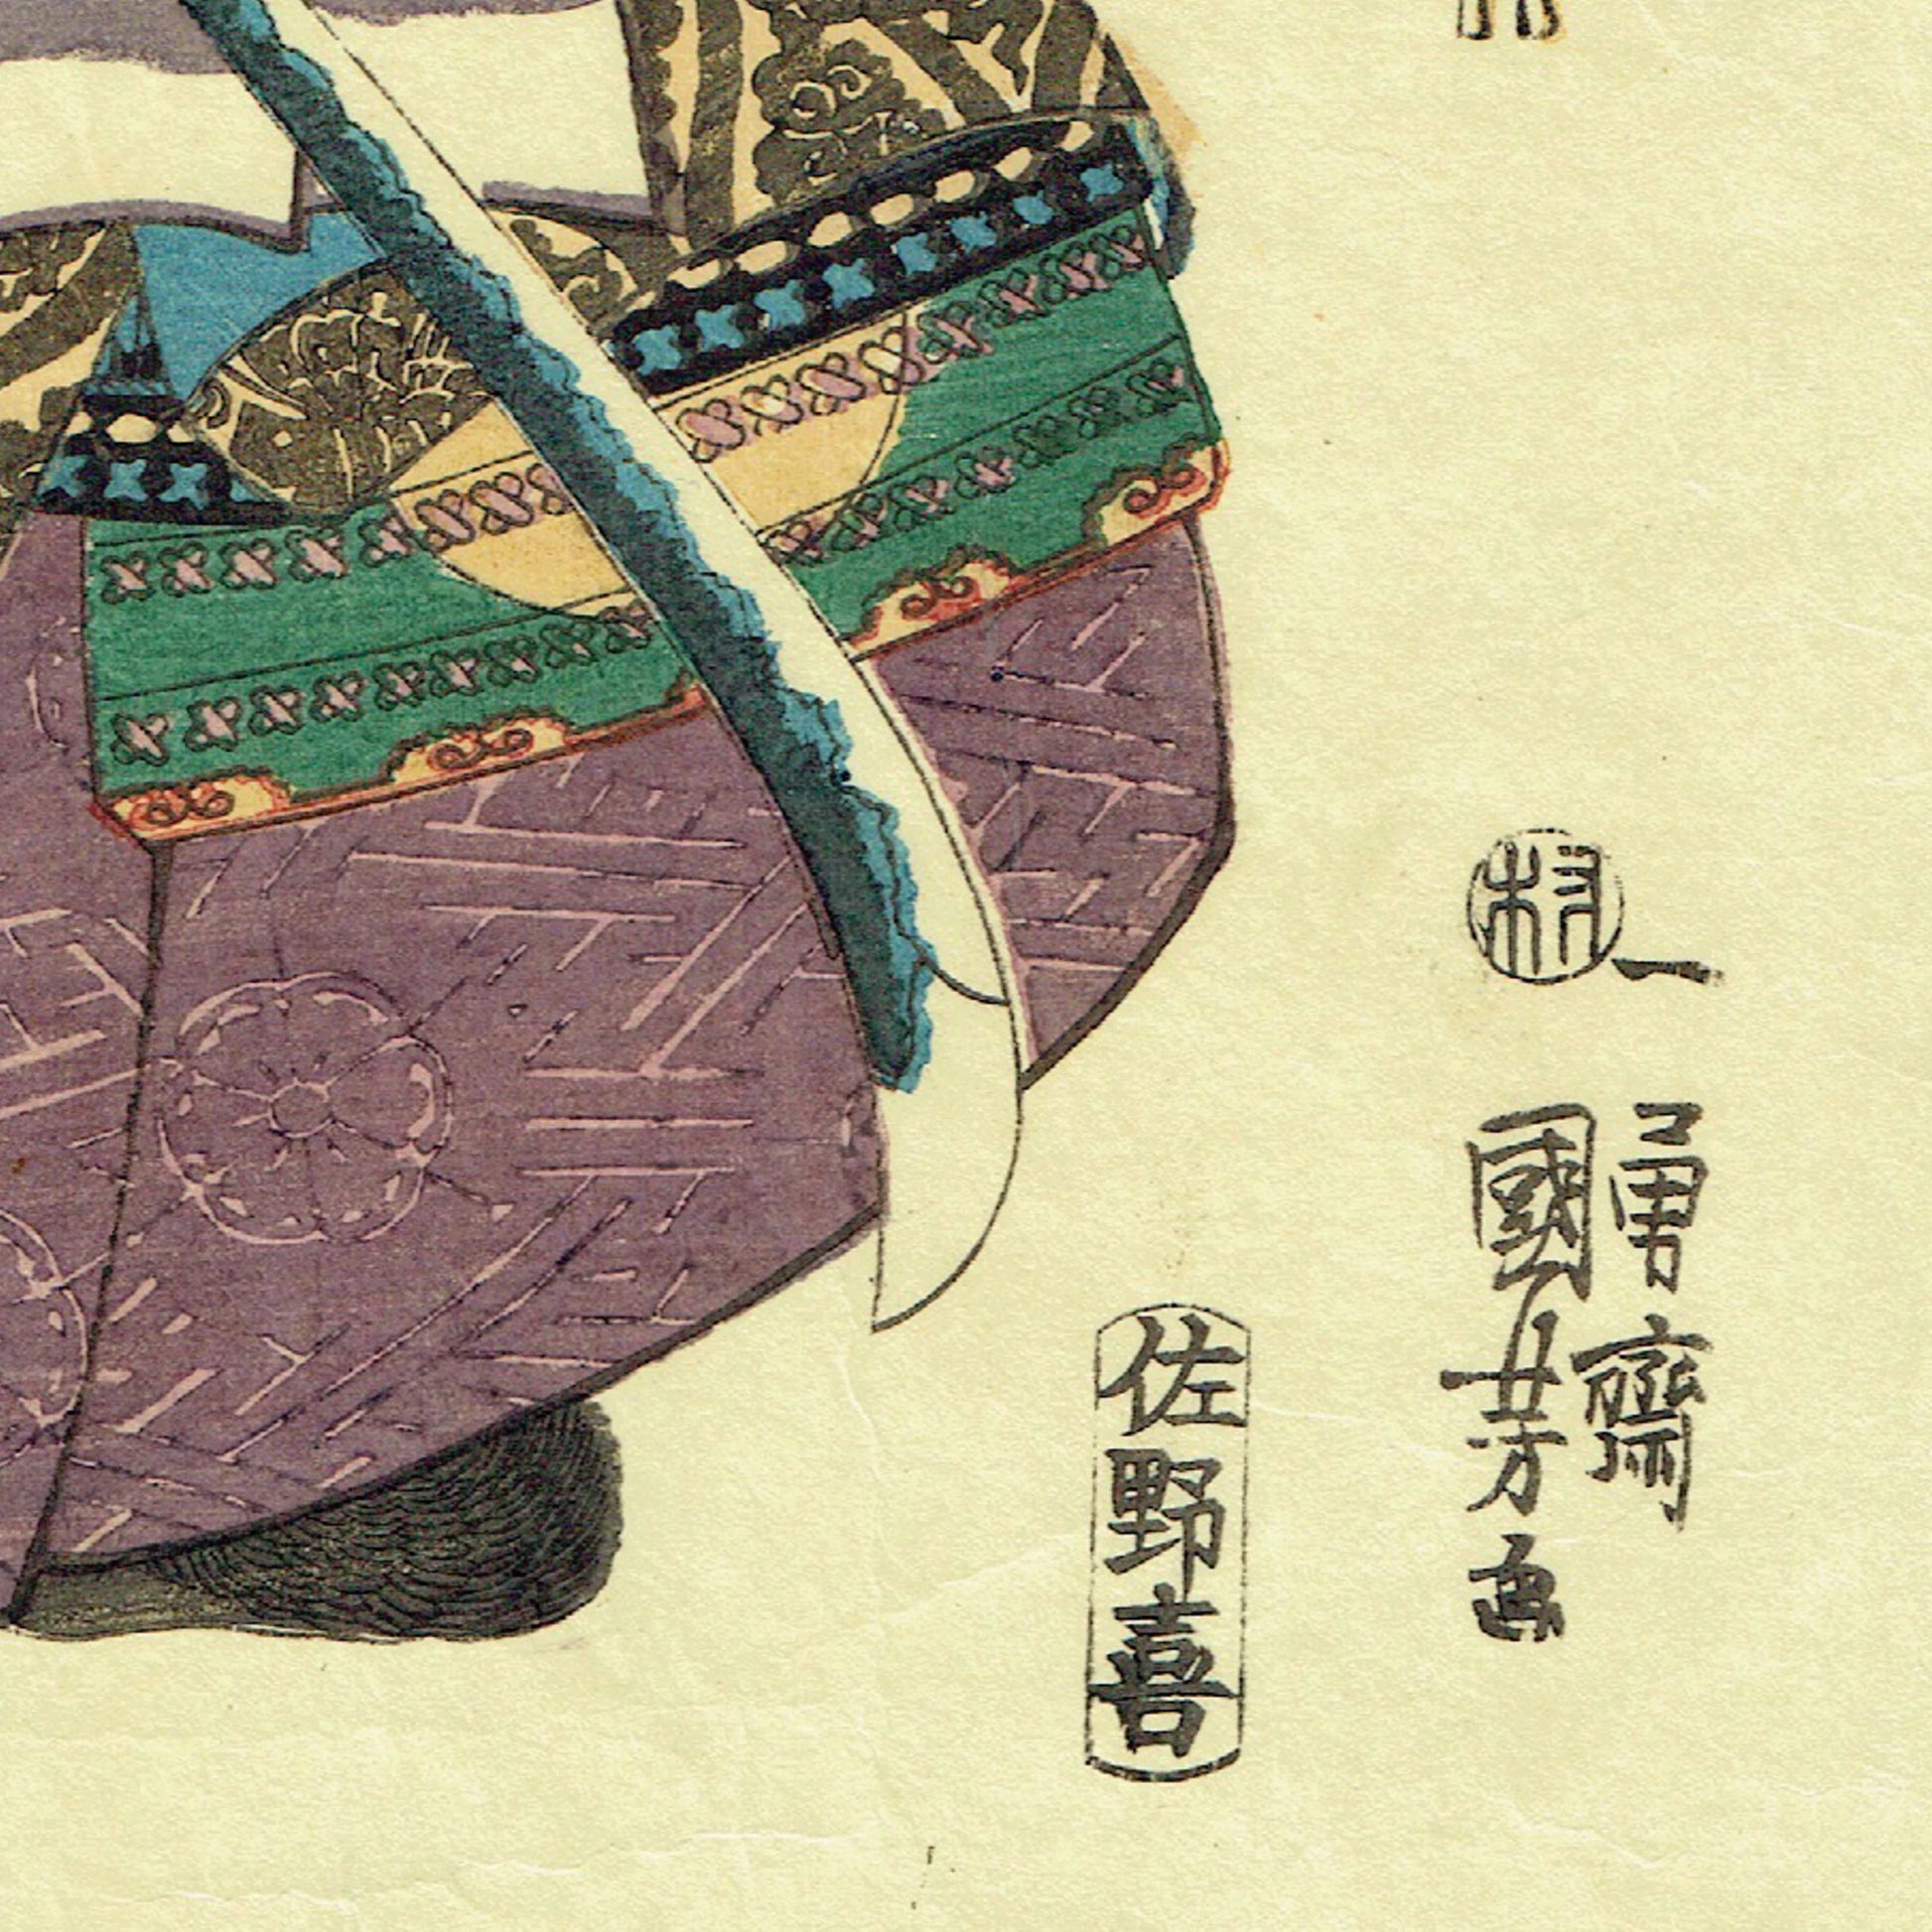 一勇齋
國芳画
村
佐野喜